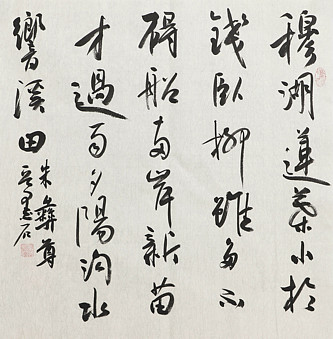 穆湖蓮葉小於
錢臥柳雖多不
碍船兩岸新苗
才過雨夕陽沟水
響溪田
朱彝尊